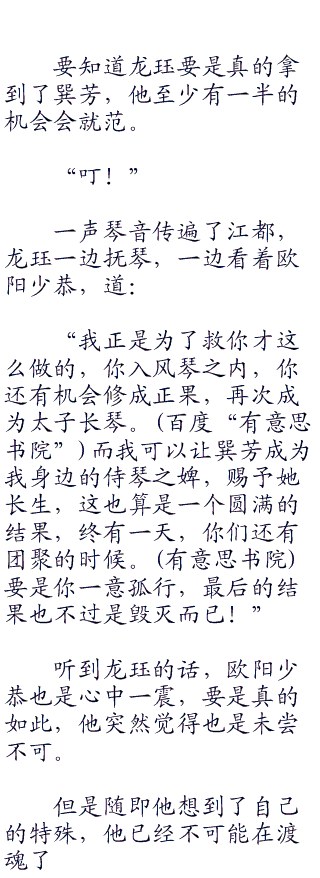 要知道龙珏要是真的拿
到了巽芳，他至少有一半的
机会会就范。
“叮！”
一声琴音传遍了江都，
龙珏一边抚琴，一边看着欧
阳少恭，道：
“我正是为了救你才这
么做的，你入风琴之内，你
还有机会修成正果，再次成
为太子长琴。(百度“有意思
书院”)而我可以让巽芳成为
我身边的侍琴之婢，赐予她
长生，这也算是一个圆满的
结果，终有一天，你们还有
团聚的时候。(有意思书院)
要是你一意孤行，最后的结
果也不过是毁灭而已！”
听到龙珏的话，欧阳少
恭也是心中一震，要是真的
如此，他突然觉得也是未尝
不可。
但是随即他想到了自己
的特殊，他已经不可能在渡
魂了